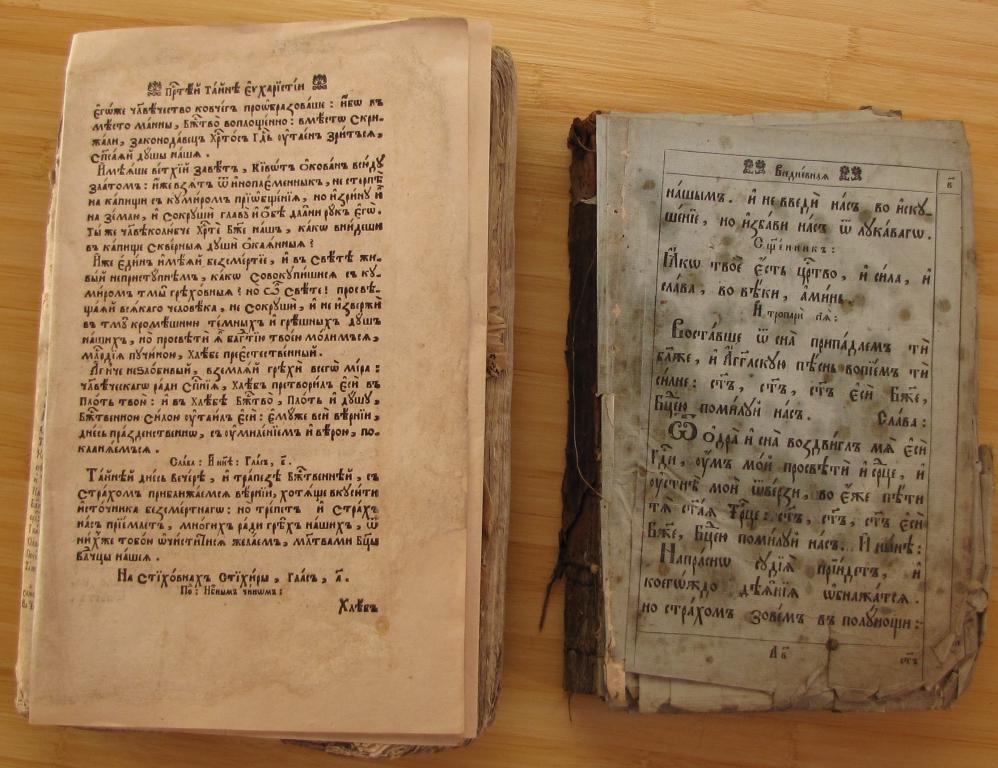 прⷭ҇тѣй та́йнѣ є҆ѵхарі́стїи
є҆гѡ́же чл҃вѣ́чество ковче́гъ проѡбразова́ше : и҆́бо въ
мѣ́сто ма́нны , Бж҃тво̀ воплоще́нно : вмѣ́стѡ скри-
жа́ли , законода́вецъ Хрⷭ҇то́съ Гдⷭ҇ь ᲂу҆та́єн зри́тъсѧ ,
Сп҃са́ѧй ду́шы на́шѧ .
И҆мѣ́ѧше ве́тхїй завѣ́тъ , Кївѡ́тъ ѻ҆ко́ванъ всю́ду
зла́томъ : и҆́же взѧ́тъ ѿ и҆ноплеме́нныкъ , не стерпѣ̀
на ка́пищи съ кумі́ромъ прїѡбще́нїѧ , но и҆зри́ну и҆̀
на зе́мли , и҆ сокрушѝ главꙋ̀ и҆ ѻ҆́бѣ дла́ни рꙋ́къ є҆гѡ̀ .
Ты́ же чл҃вѣколю́бче Хрⷭ҇тѐ Бж҃е на́шъ , ка́кѡ вни́деши
въ ка́пище скве́рныѧ дꙋшѝ ѻ҆каѧ́нныѧ ?
И҆́же є҆ди́нъ и҆мѣ́ѧй безсме́ртїе , и҆ въ свѣ́тѣ жи-
вы́й непристꙋ́пнѣмъ , ка́кѡ совокупи́шисѧ съ кꙋ-
мі́ромъ тмы̀ грѣхо́вныѧ ? но ѽ Свѣ́те ! просвѣ-
ща́ѧй всѧ́каго человѣ́ка , не сокрушѝ , и҆ не и҆зве́ржи
въ тмꙋ̀ кромѣ́шнюю те́мныхъ и҆ грѣ́шныхъ дꙋ́шъ
на́шихъ , но просвѣтѝ ѧ҆̀ бл҃гⷣтїю твое́ю мо́лимъсѧ ,
млⷭ҇рдїѧ пꙋчи́ною , хлѣ́бе прес꙼ꙋ́щественный .
А҆́гнче незло́бивый , взе́млѧй грѣхѝ всегѡ̀ мі́ра :
чл҃вѣ́ческаго ра́ди сп҃се́нїѧ , хлѣ́бъ претвори́лъ є҆сѝ въ
пло́ть твою̀ : и҆ въ хлѣ́бѣ Бж҃тво̀ , пло́ть и҆ дꙋ́шꙋ ,
Бж҃твенною си́лою ᲂу҆таи́лъ є҆сѝ : є҆мꙋ́же всѝ вѣ́рнїи ,
дне́сь пра́зденственнѡ , съ ᲂу҆миле́нїемъ и҆ вѣ́рою , по-
кланѧ́емьсѧ .
Сла́ва : И҆ ны́нѣ : Гла́съ , а҃ .
Та́йнѣй дне́сь вече́ри , и҆ трапе́зѣ бж҃твеннѣй , съ
стра́хомъ прибли́жаемсѧ вѣ́рнїи , хотѧ́ще вкуси́ти
и҆сто́чника безсме́ртнагѡ : но тре́петъ и҆ стра́хъ
на́съ прїе́млетъ , мно́гихъ ра́ди грѣ́хъ на́шихъ , ѿ
ни́хже тобо́ю ѡ҆чи́ститисѧ жела́емъ , мл҃твами Бц҃ы
влⷣчцы на́шеѧ .
На стїхо́внахъ стїхи́ры , гла́съ , а҃ .
По : Нбⷭ҇нымъ чинѡ́мъ :
Хлѣ́бъ
Вседне́внаѧ
в҃
на́шымъ . и҆ не введѝ на́съ во и҆скꙋ-
ше́нїе , но и҆зба́ви на́съ ѿ лꙋка́вагѡ .
Сщ҃е́нникъ :
Ꙗ҆́кѡ твоѐ є҆́сть црⷭ҇тво , и҆ си́ла , и҆
сла́ва , во вѣ́ки , а҆ми́нь .
И҆ тропарѝ сїѧ̑ :
Воста́вше ѿ сна̀ припа́даемъ тѝ
бл҃же , и҆ А҆́гг҃лскꙋю пѣ́снь вопїе́мъ тѝ
си́лне : ст҃ъ , ст҃ъ , ст҃ъ є҆сѝ Бж҃е ,
Бцⷣею поми́лꙋй на́съ . Сла́ва :
Ѿ ѻ҆дра̀ и҆ сна̀ воздви́глъ мѧ̀ є҆сѝ
Гдⷭ҇и , ᲂу҆́мъ мо́й просвѣтѝ и҆ срⷣце , и҆
ᲂу҆стнѣ̀ моѝ ѿве́рзи , во є҆́же пѣ́ти
тѧ̀ ст҃а́ѧ Трⷪ҇це : ст҃ъ , ст҃ъ , ст҃ъ є҆сѝ
Бж҃е , Бцⷣею поми́лꙋй на́съ . И҆ ны́нѣ :
Напра́снѡ сꙋдїѧ̀ прїи́детъ , и҆
коегѡ́ждо дѣѧ̑нїѧ ѡ҆бнажа́тсѧ .
но стра́хомъ зове́мъ въ полꙋ́нощи :
А в҃
ст҃ъ